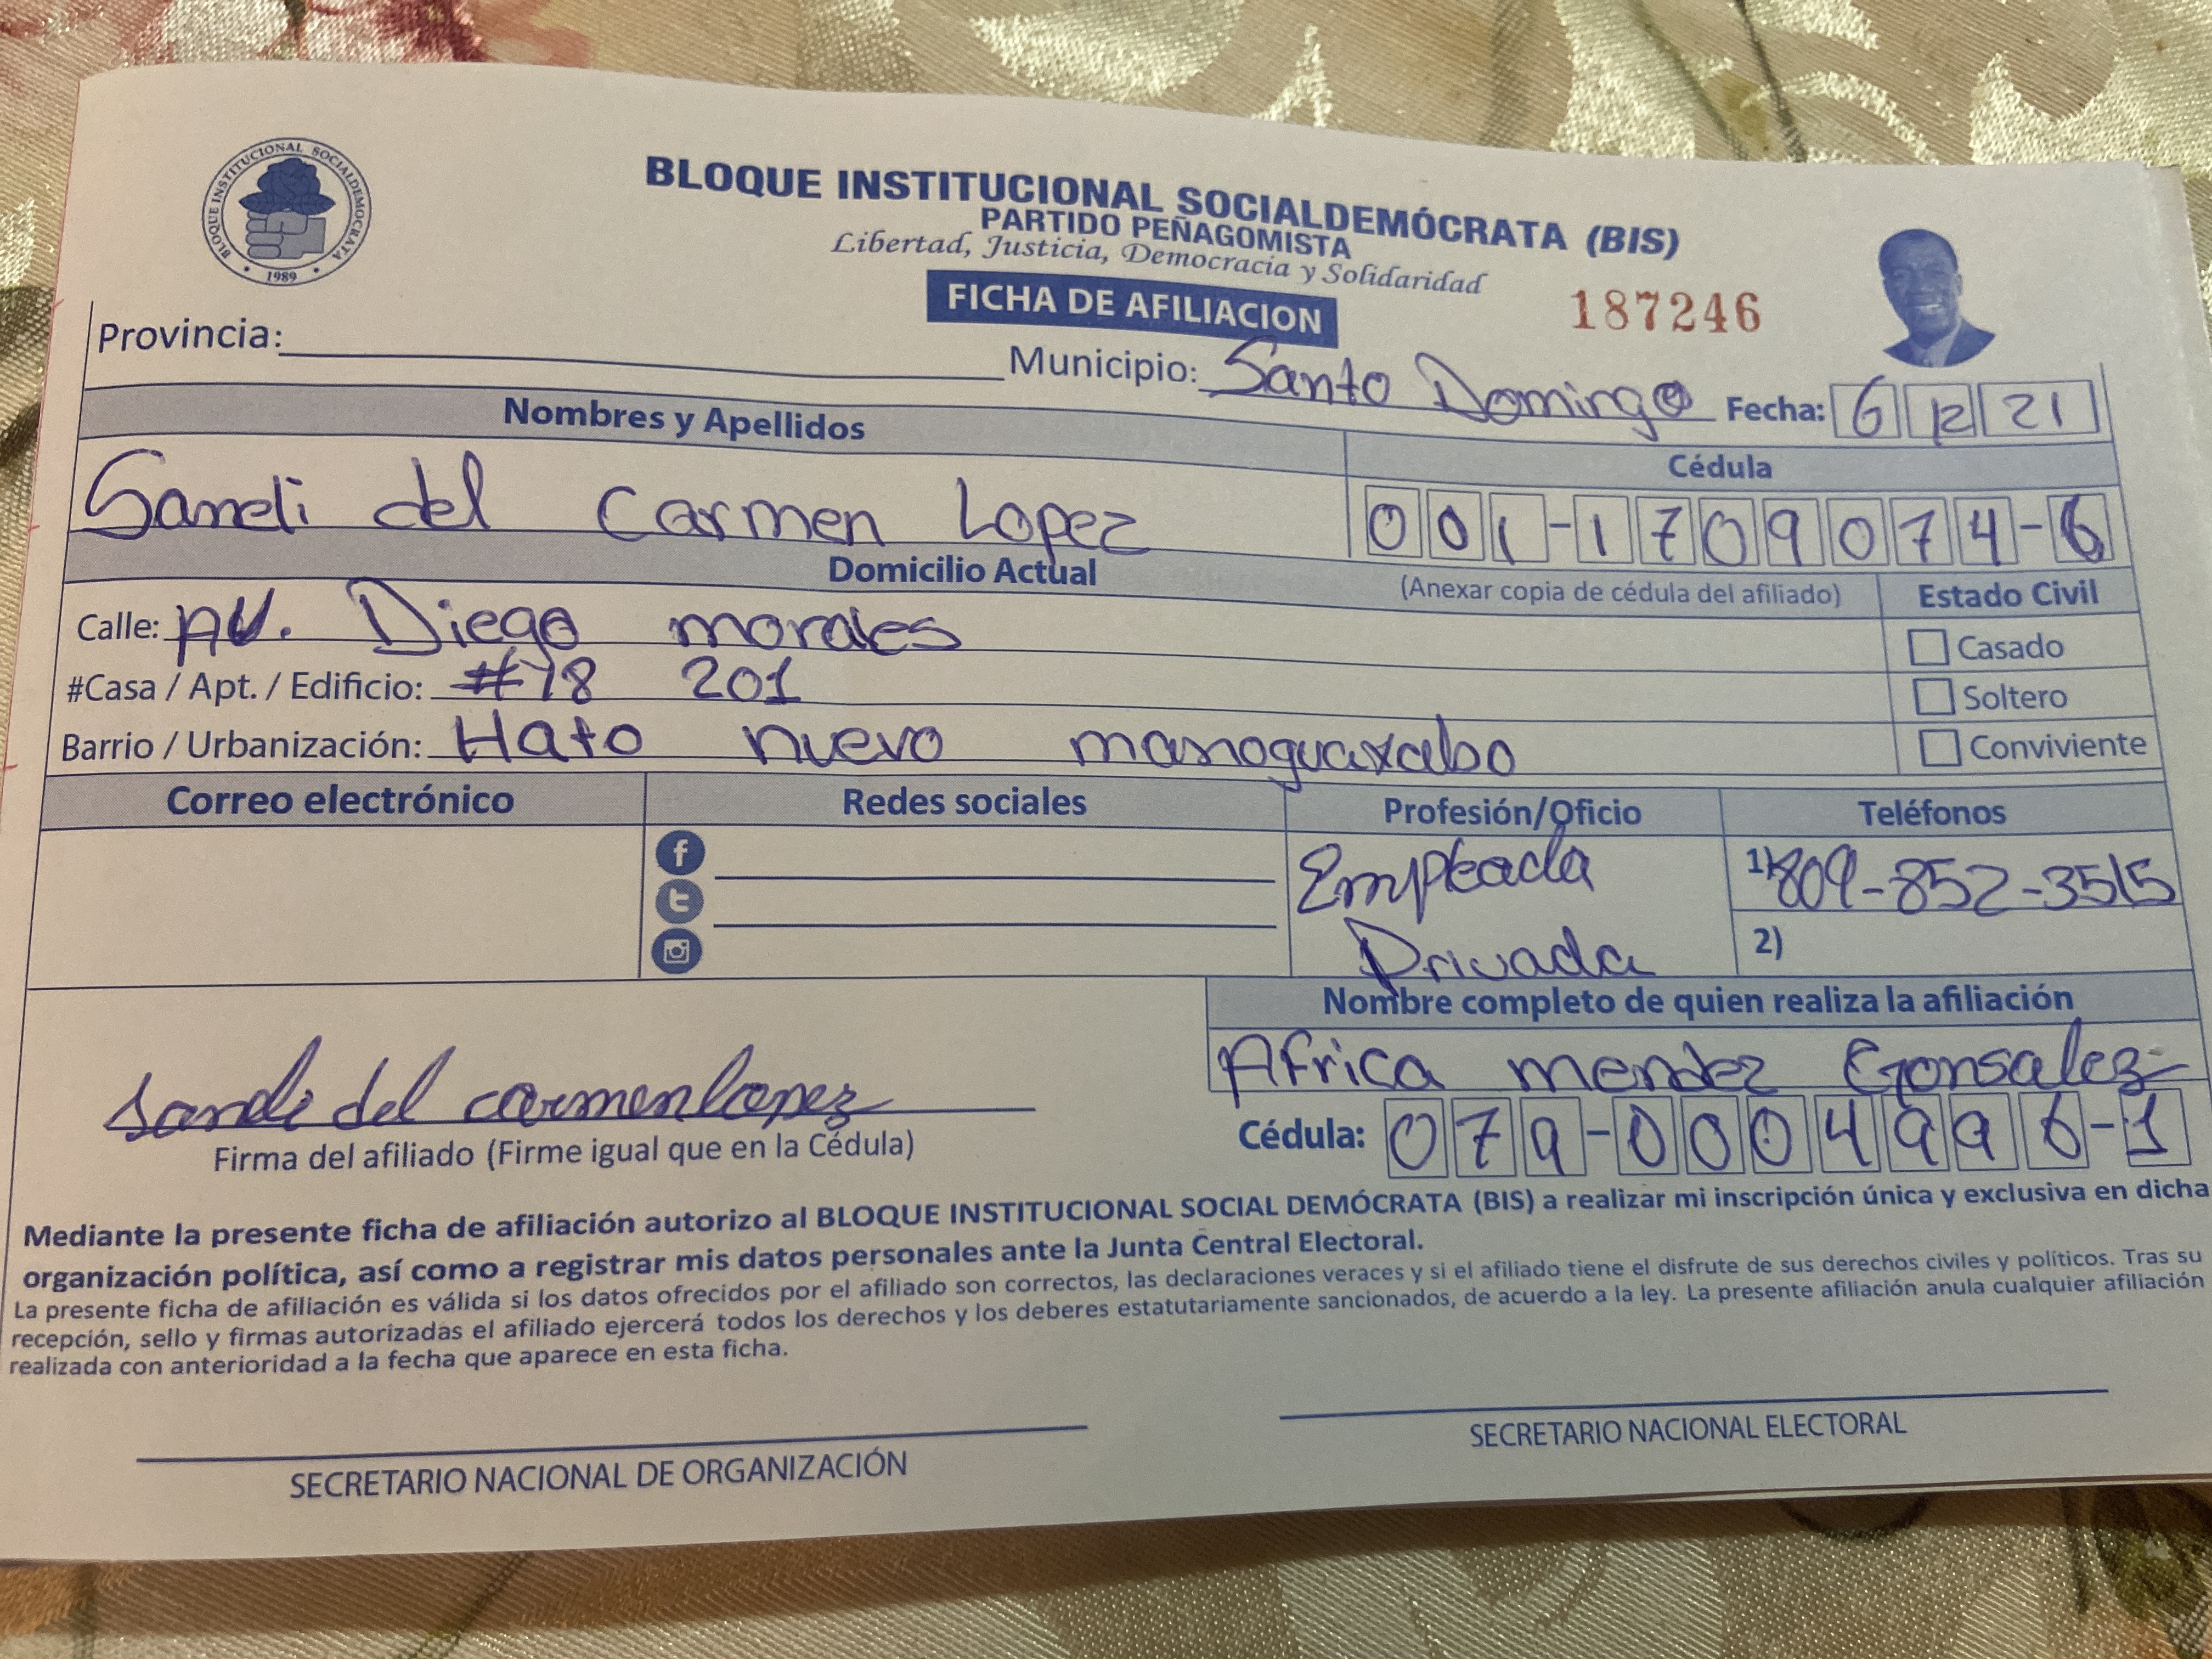 BLOQUE INSTITUCIONAL SOCIALDEMOCRATA
1989
BLOQUE INSTITUCIONAL SOCIALDEMÓCRATA (BIS)
PARTIDO PEÑAGOMISTA
Libertad, Justicia, Democracia y Solidaridad
FICHA DE AFILIACION
187246
Provincia: Municipio: Santo Domingo Fecha: 6 12 21
Nombres y Apellidos
Cédula
Sandi del Carmen Lopez 001-1709074-6
Domicilio Actual
(Anexar copia de cédula del afiliado) Estado Civil
Calle: AV. Diego morales
Casado
#Casa / Apt. / Edificio: #78 201
Soltero
Barrio / Urbanización: Hato nuevo manoguayabo
Conviviente
Correo electrónico Redes sociales Profesión/Oficio Teléfonos
f
t
Empleada
Privada
1) 809-852-3515
2)
Nombre completo de quien realiza la afiliación
Africa mendez Gonsalez
Cédula: 079-0004996-1
Sandi del carmen lopez
Firma del afiliado (Firme igual que en la Cédula)
Mediante la presente ficha de afiliación autorizo al BLOQUE INSTITUCIONAL SOCIAL DEMÓCRATA (BIS) a realizar mi inscripción única y exclusiva en dicha
organización política, así como a registrar mis datos personales ante la Junta Central Electoral.
La presente ficha de afiliación es válida si los datos ofrecidos por el afiliado son correctos, las declaraciones veraces y si el afiliado tiene el disfrute de sus derechos civiles y políticos. Tras su
recepción, sello y firmas autorizadas el afiliado ejercerá todos los derechos y los deberes estatutariamente sancionados, de acuerdo a la ley. La presente afiliación anula cualquier afiliación
realizada con anterioridad a la fecha que aparece en esta ficha.
SECRETARIO NACIONAL DE ORGANIZACIÓN
SECRETARIO NACIONAL ELECTORAL